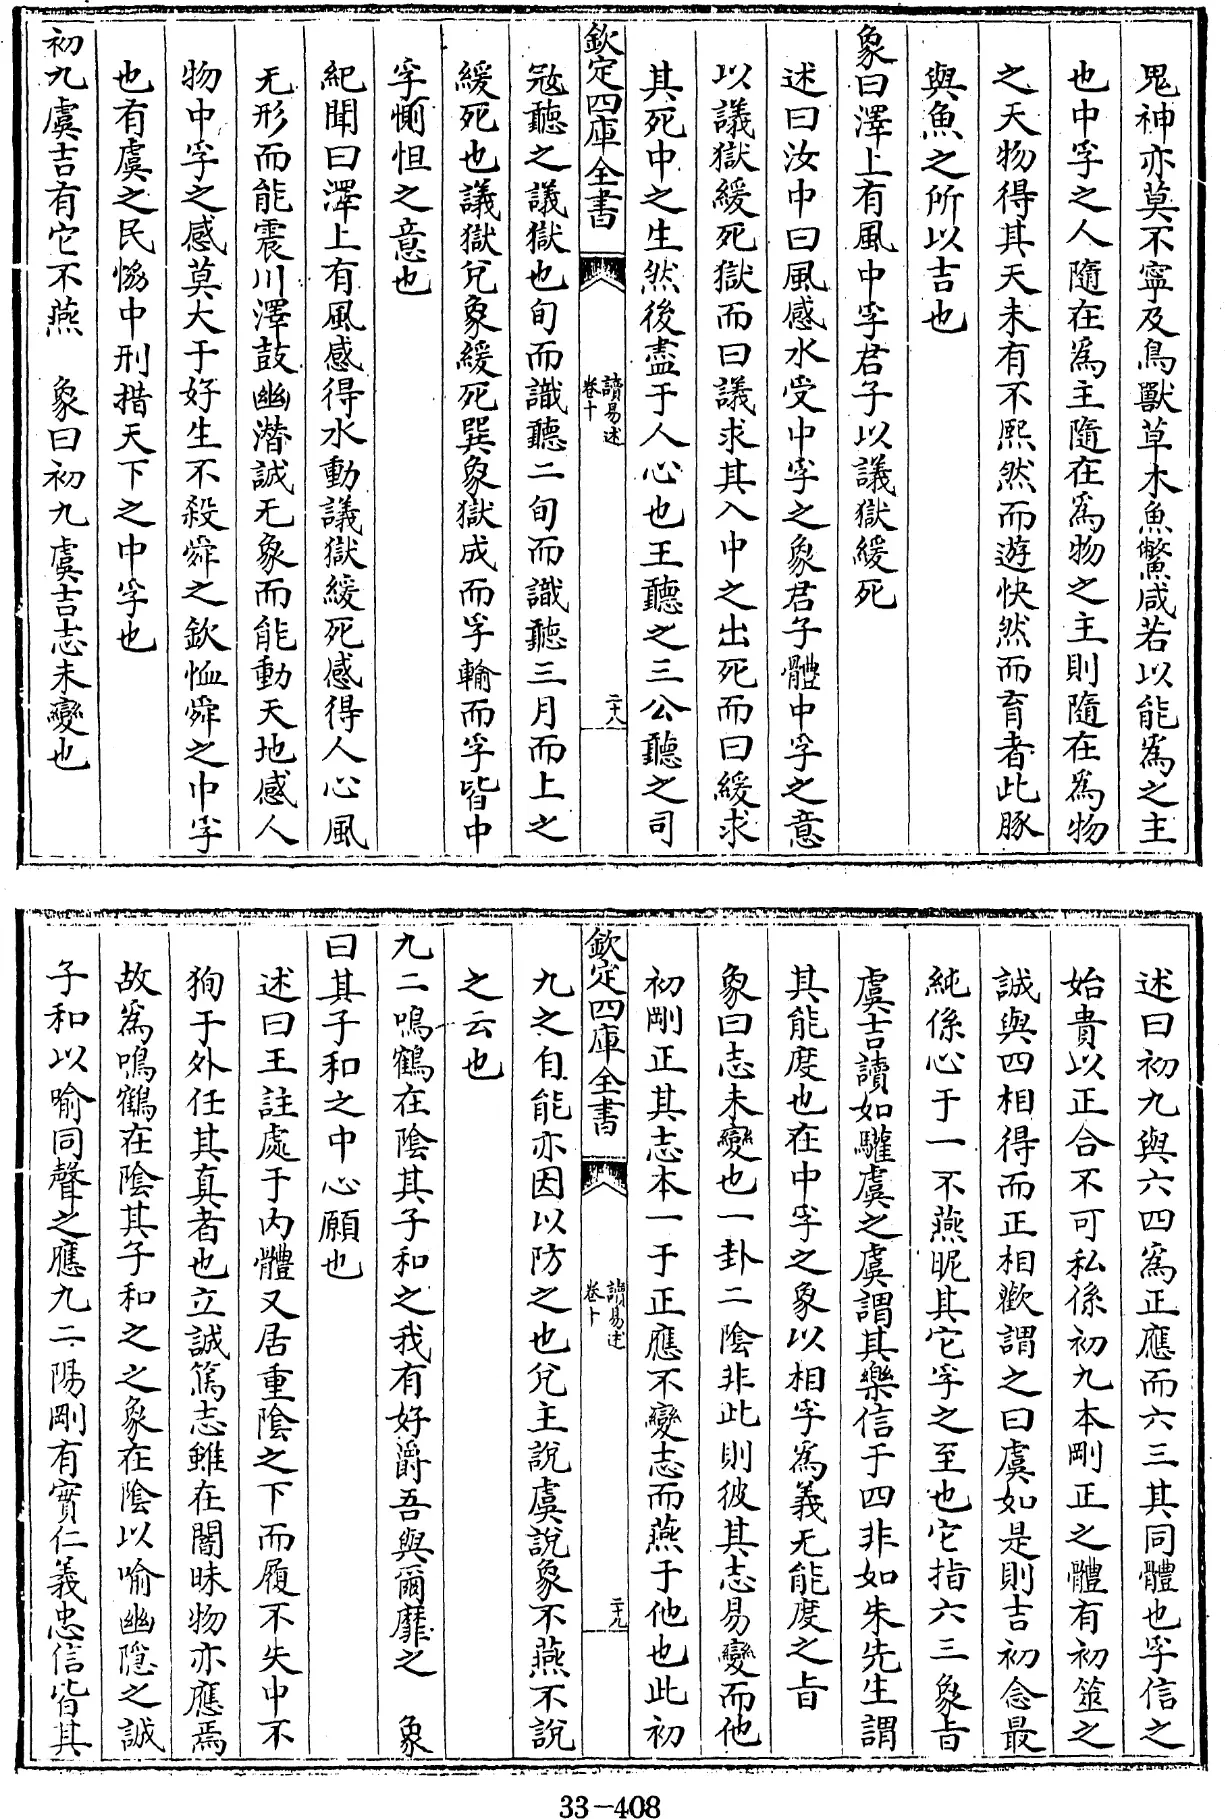 鬼神亦莫不寧及鳥獸草木魚鱉咸若以能為之主
也中孚之人隨在為主隨在為物之主則隨在為物
之天物得其天未有不熙然而遊快然而育者此豚
與魚之所以吉也
象曰澤上有風中孚君子以議獄緩死
述曰汝中曰風感水受中孚之象君子體中孚之意
以議獄緩死獄而曰議求其入中之出死而曰緩求
其死中之生然後盡于人心也王聽之三公聽之司
欽定四庫全書
讀易述
卷十
二十八
冦聽之議獄也旬而識聽二旬而識聽三月而上之
緩死也議獄兌象緩死巽象獄成而孚輸而孚皆中
孚惻怛之意也
紀聞曰澤上有風感得水動議獄緩死感得人心風
无形而能震川澤鼓幽潛誠无象而能動天地感人
物中孚之感莫大于好生不殺舜之欽恤舜之中孚
也有虞之民恊中刑措天下之中孚也
初九虞吉有它不燕 象曰初九虞吉志未變也
述曰初九與六四為正應而六三其同體也孚信之
始貴以正合不可私係初九本剛正之體有初筮之
誠與四相得而正相歡謂之曰虞如是則吉初念最
純係心于一不燕昵其它孚之至也它指六三象㫖
虞吉讀如驩虞之虞謂其樂信于四非如朱先生謂
其能度也在中孚之象以相孚為義无能度之㫖
象曰志未變也一卦二陰非此則彼其志易變而他
初剛正其志本一于正應不變志而燕于他也此初
欽定四庫全書
讀易述
卷十
二十九
九之自能亦因以防之也兌主說虞說象不燕不說
之云也
九二鳴鶴在陰其子和之我有好爵吾與爾靡之 象
曰其子和之中心願也
述曰王註處于内體又居重陰之下而履不失中不
狥于外任其真者也立誠篤志雖在闇昧物亦應焉
故為鳴鶴在陰其子和之之象在陰以喻幽隱之誠
子和以喻同聲之應九二陽剛有實仁義忠信皆其
33-408